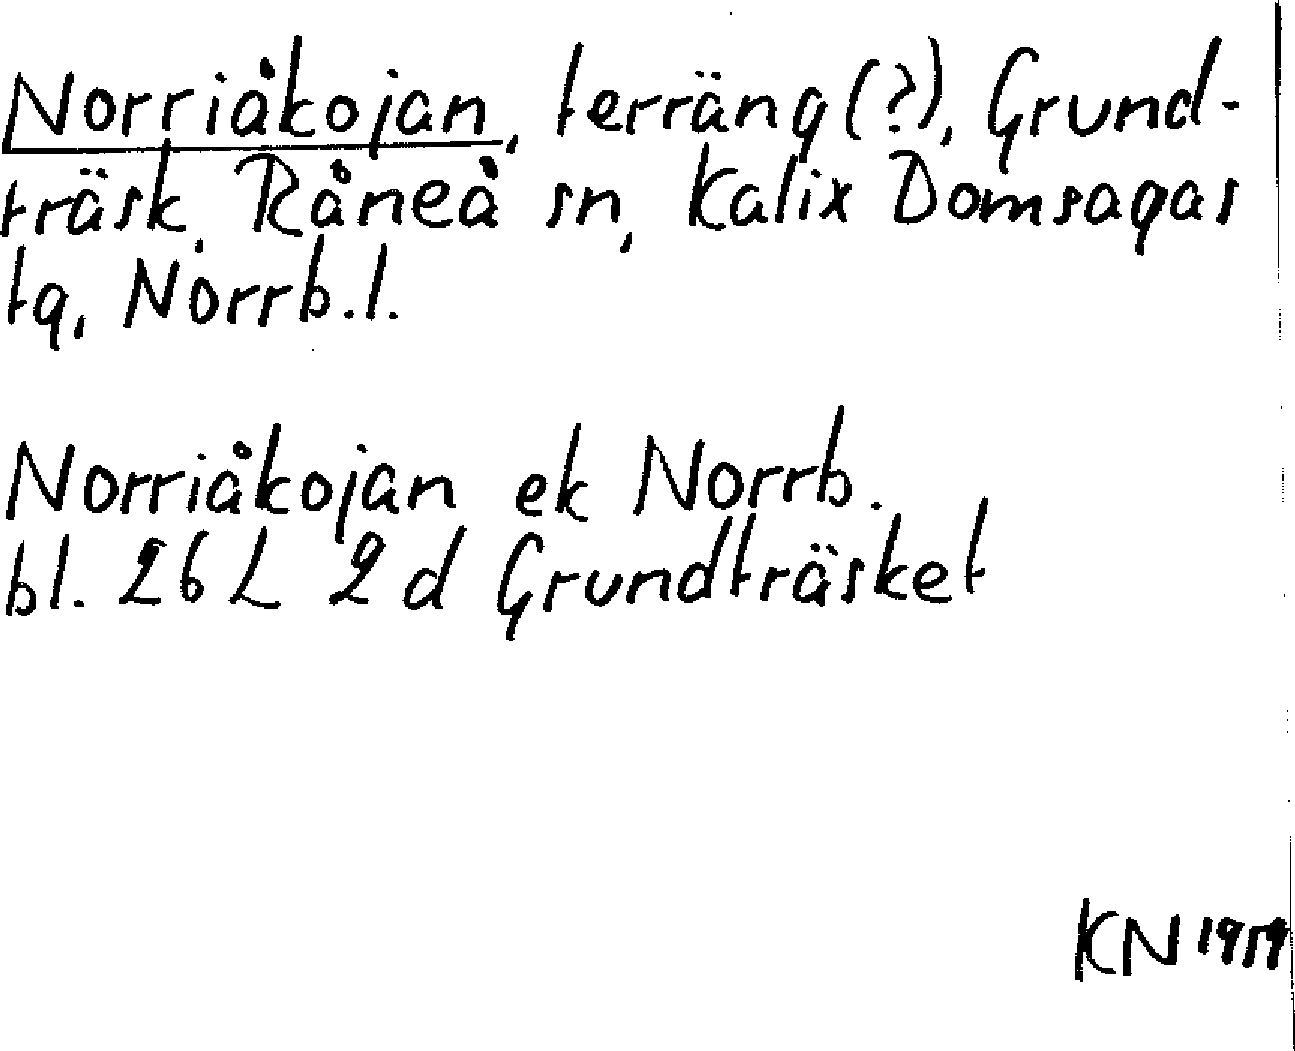 Norriåkojan, terräng (?), Grund-
träsk, Råneå sn, Kalix Domsagas
tg, Norrb.l.
Norriåkojan ek Norrb.
bl. 26 L 2 d Grundträsket
KN